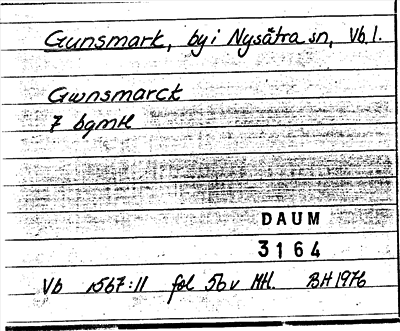 Gunsmark, by i Nysätra sn, Vb l.
Gwnsmarck
7 bgmtl
DAUM
3164
Vb 1567:11 fol 5b v MH. BH 1976